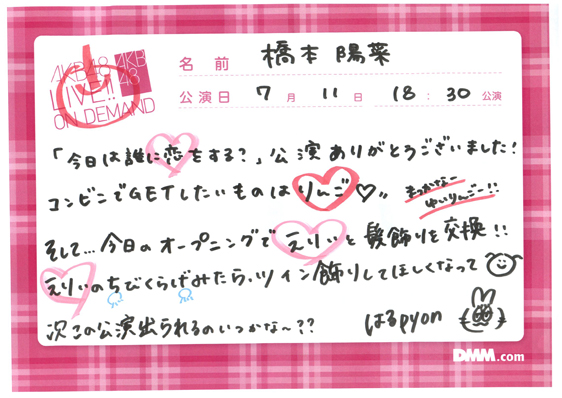 AKB48
LIVE!!
ON DEMAND
AKB
48
名前 橋本 陽菜
公演日 7月 11日 18:30 公演
「今日は誰に恋をする?」公演ありがとうございました!
コンビニでGETしたいものはりんご♡〃
まっかなー
ゆいりんごー!!
そして…今日のオープニングでえりぃと髪飾りを交換!!
えりぃのちびくらげみたら、ツイン飾りしてほしくなって
次この公演出られるのいつかな〜??
はるpyon
DMM.com